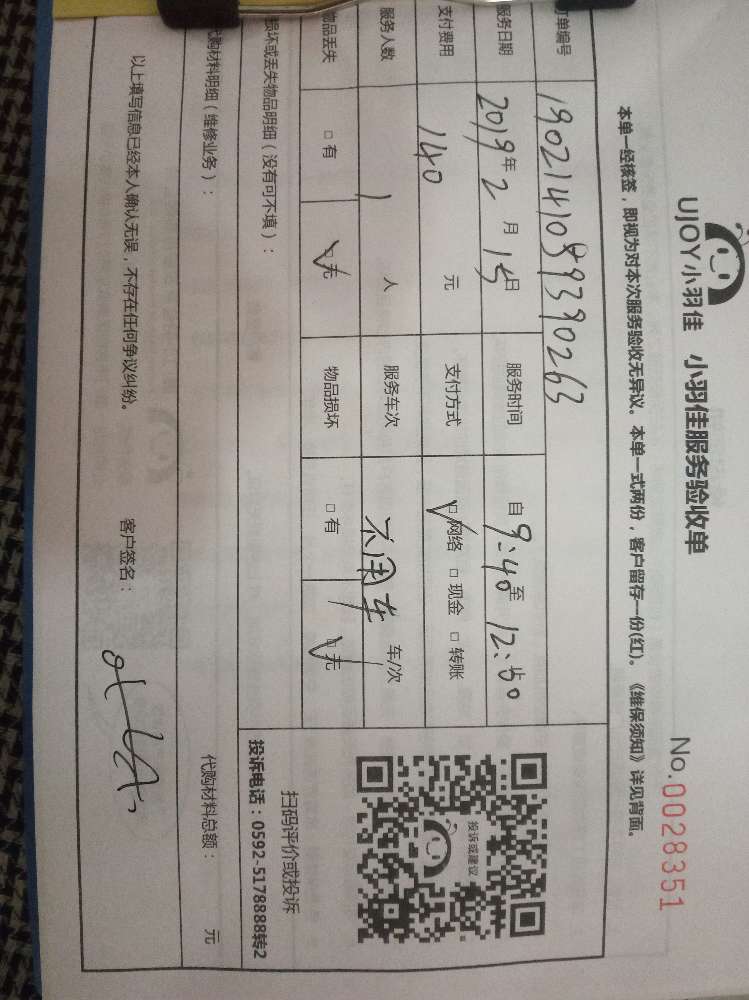 UJOY小羽佳 小羽佳服务验收单
No.0028351
本单一经核签，即视为对本次服务验收无异议。本单一式两份，客户留存一份(红)。《维保须知》详见背面。
单编号 1902141059390263
服务日期 2019年2月15日 服务时间 自9:40至12:50
支付费用 140元 支付方式 □网络 □现金 □转账
服务人数 1人 服务车次 不用车 车/次
物品丢失 □有 □无 物品损坏 □有 □无
投诉或建议
扫码评价或投诉
投诉电话：0592-5178888转2
损坏或丢失物品明细（没有可不填）：
代购材料明细（维修业务）： 代购材料总额： 元
以上填写信息已经本人确认无误，不存在任何争议纠纷。 客户签名：